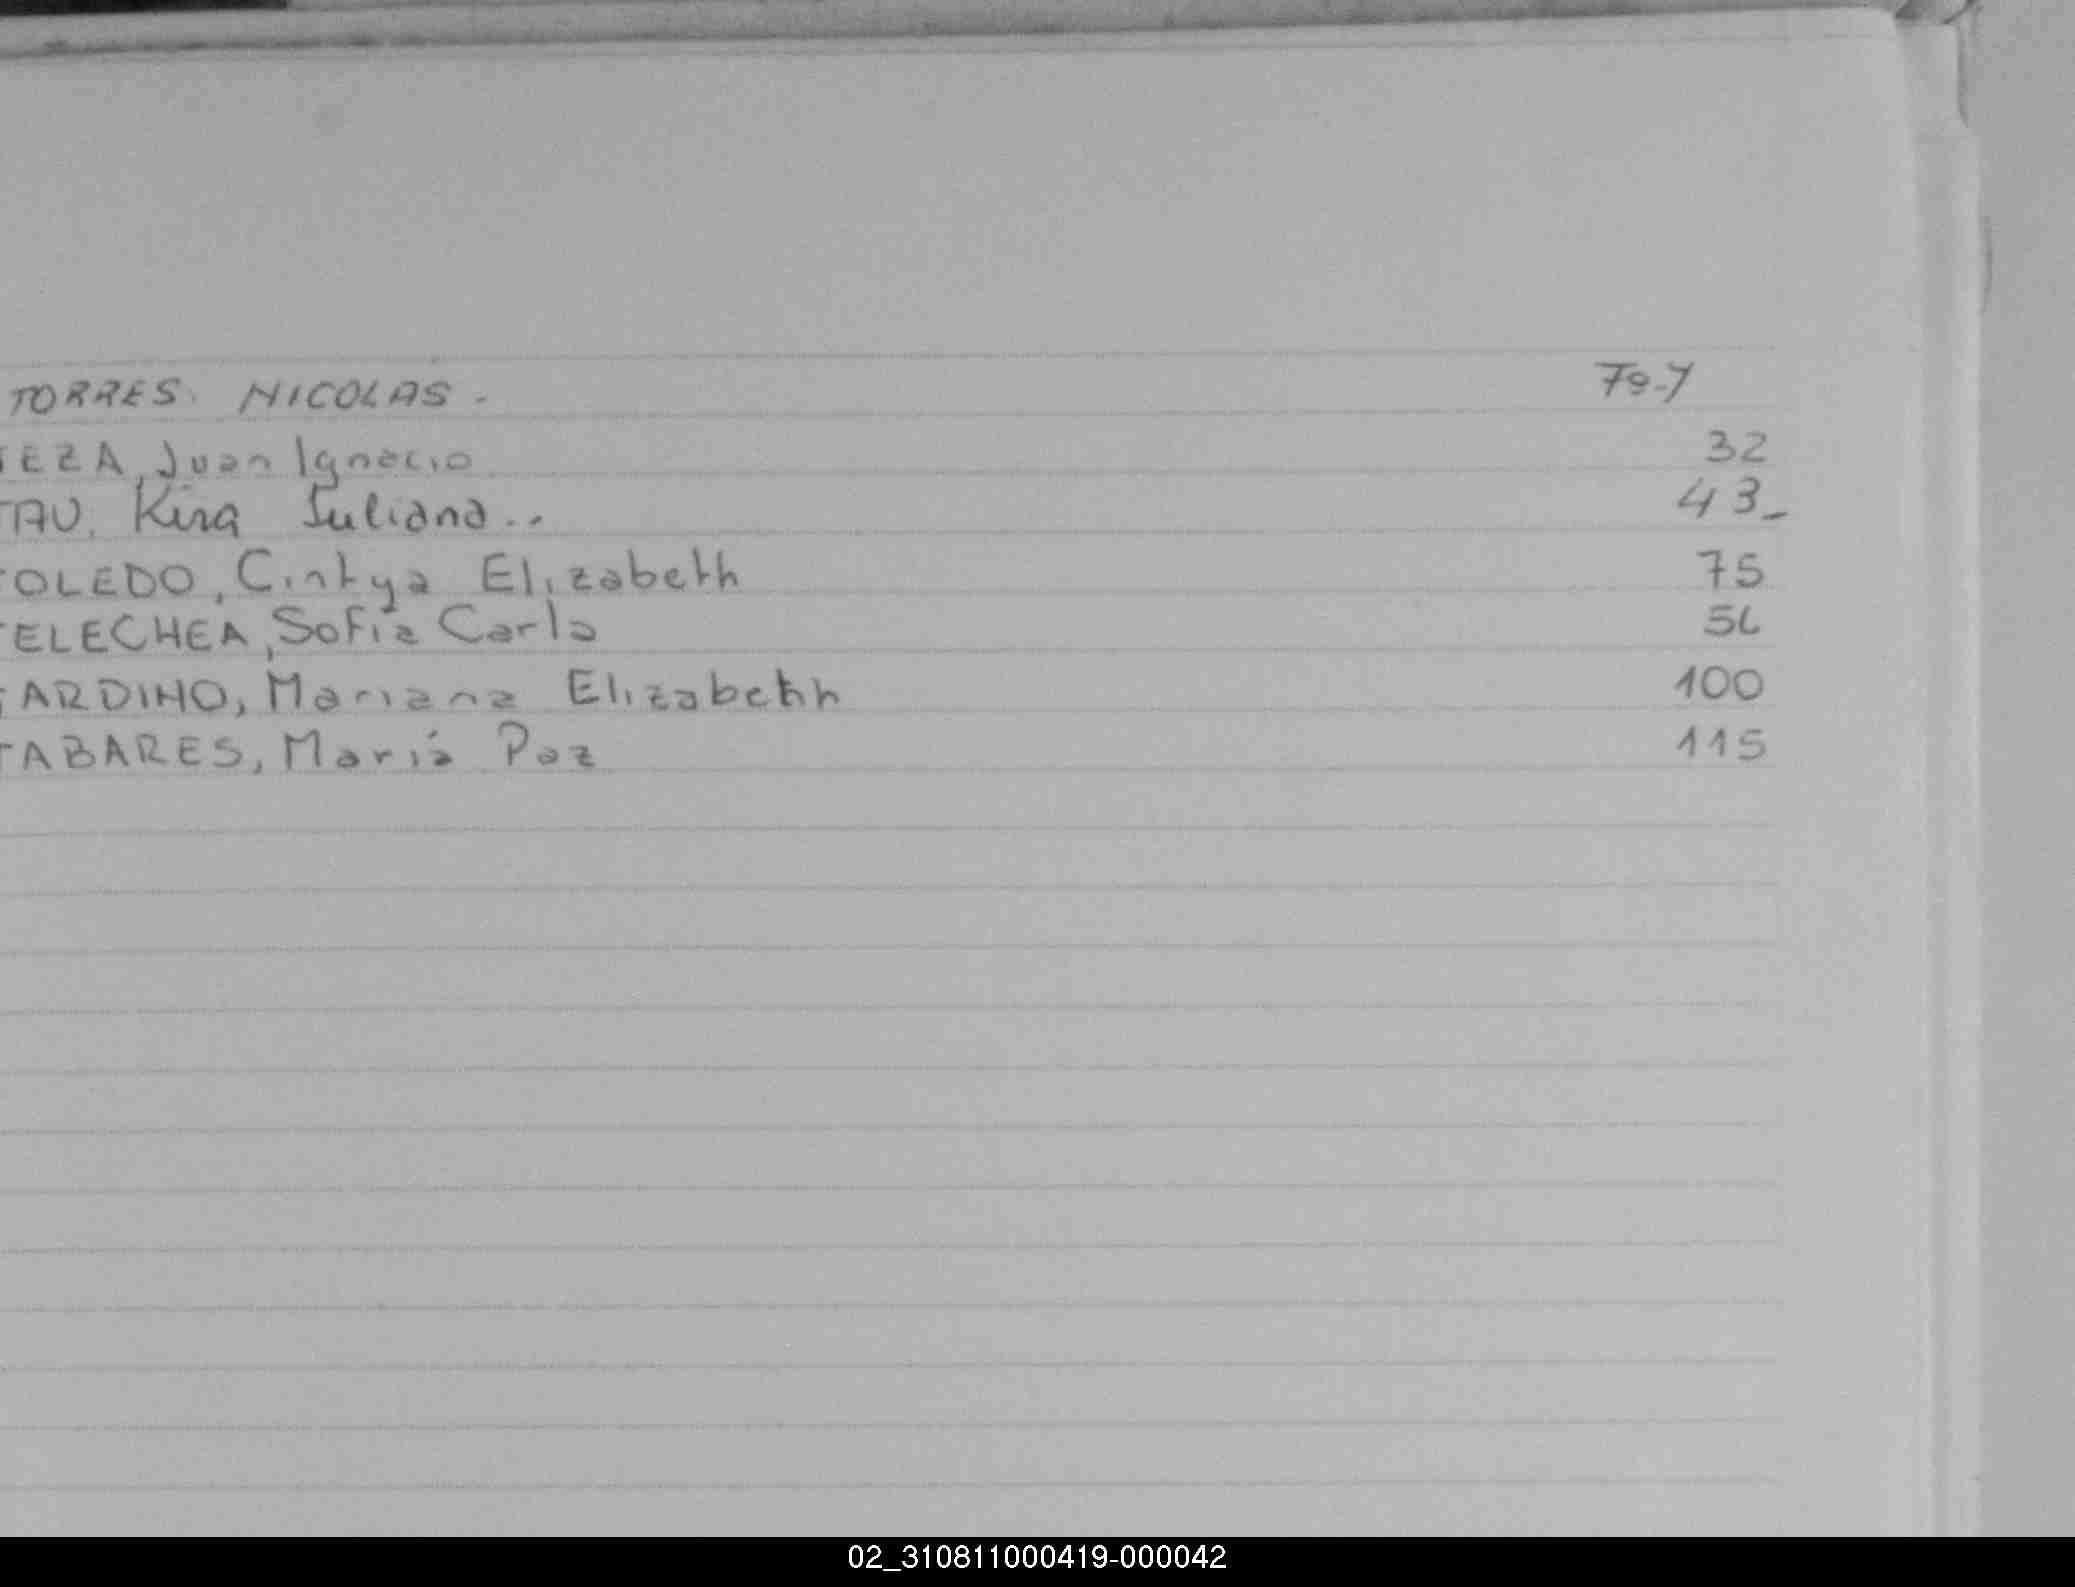 TORRES. NICOLAS. Fº-7
TEZA, Juan Ignacio 32
TAU. Kira Juliana.. 43_
TOLEDO, Cintya Elizabeth 75
TELECHEA, Sofía Carla
TARDINO, Mariana Elizabeth 100
TABARES, María Paz 115
02_310811000419-000042